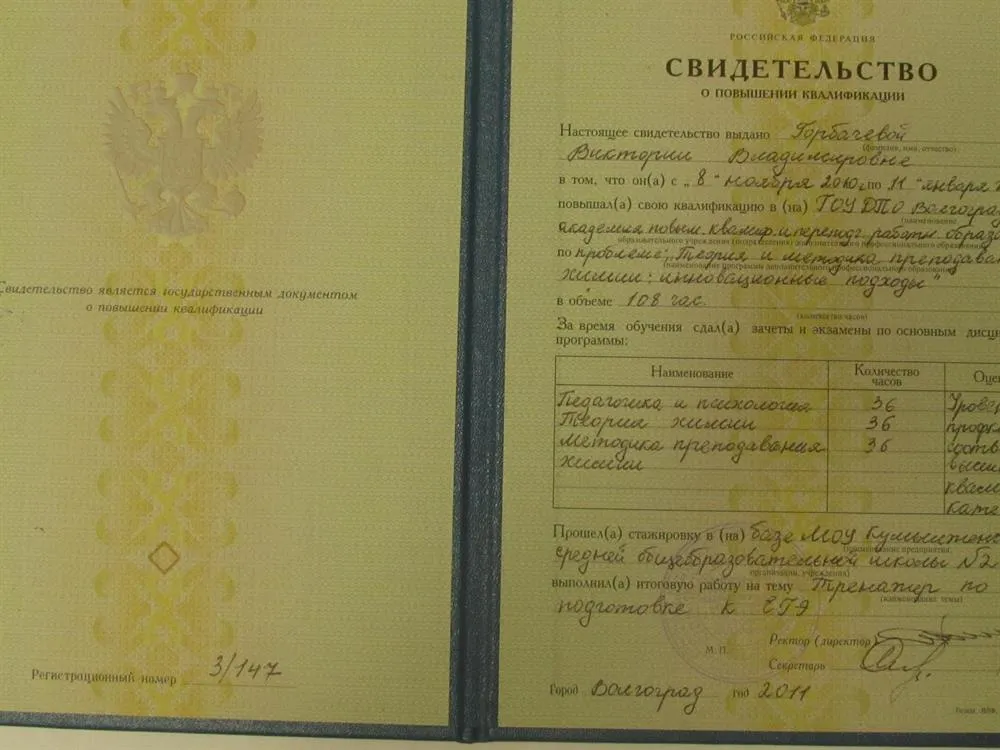 Свидетельство является государственным документом
о повышении квалификации
Регистрационный номер 3/147
РОССИЙСКАЯ ФЕДЕРАЦИЯ
СВИДЕТЕЛЬСТВО
О ПОВЫШЕНИИ КВАЛИФИКАЦИИ
Настоящее свидетельство выдано Горбачевой
(фамилия, имя, отчество)
Виктории Владимировне
в том, что он(а) с „8" ноября 2010г. по „11" января
повышал(а) свою квалификацию в (на) ГОУ ДПО Волгоград
(наименование
академия повыш. квалиф. и переподг. работн. образо
образовательного учреждения (подразделения) дополнительного профессионального образования)
по проблеме: „Теория и методика преподаван
(наименование программы дополнительного профессионального образования)
химии: инновационные подходы"
в объеме 108 час.
(количество часов)
За время обучения сдал(а) зачеты и экзамены по основным дисци
программы:
Наименование Количество часов Оцен
Педагогика и психология 36 Уровен
Теория химии 36 профк
Методика преподавания 36 соотв
химии высш
квали
кате
Прошел(а) стажировку в (на) базе МОУ Кумылженс
(наименование предприятия,
средней общеобразовательной школы №2
организации, учреждения)
выполнил(а) итоговую работу на тему Тренажер по
(наименование темы)
подготовке к ЕГЭ
Ректор (директор)
М. П.
Секретарь
Город Волгоград год 2011